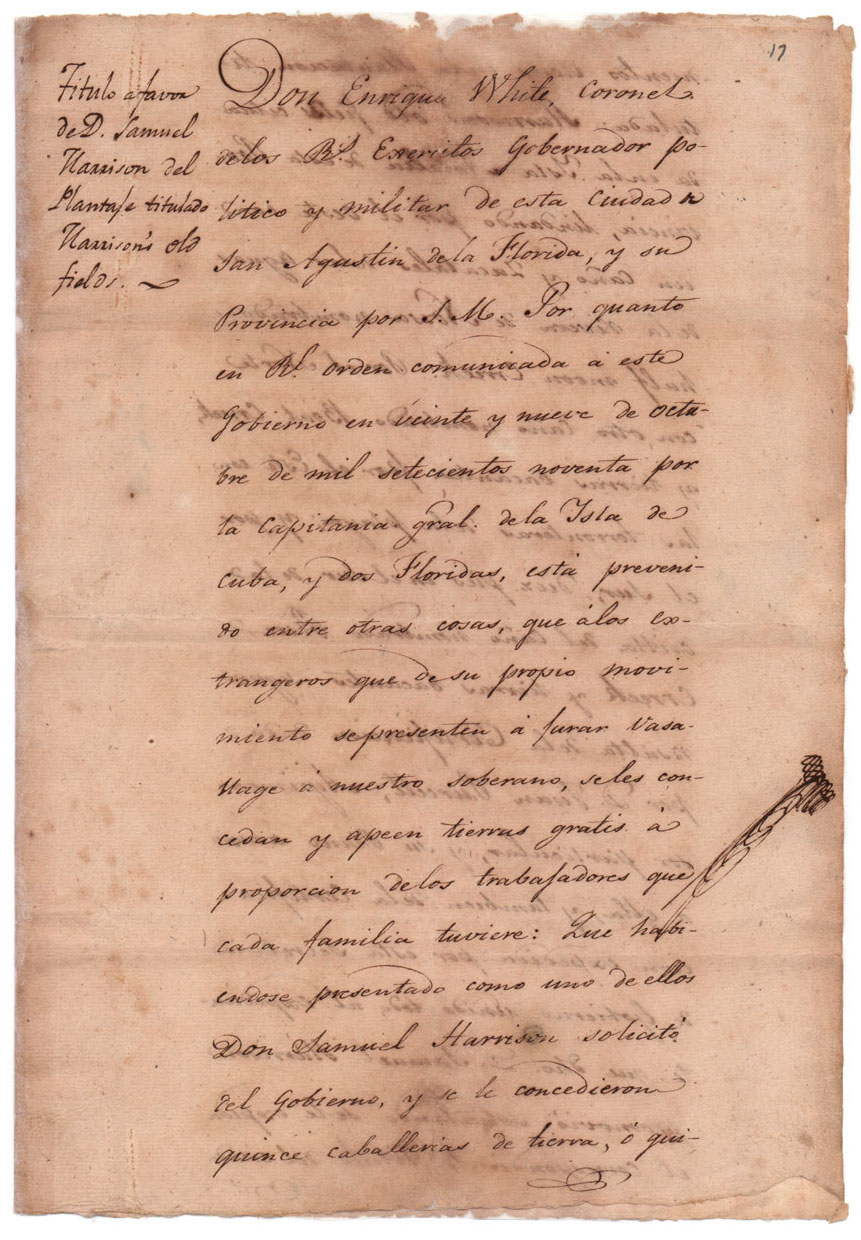 17
Titulo a favor
de D. Samuel
Harrison del
Plantaje titulado
Harrison's old
fields.
Don Enrique White, Coronel
delos Rs. Exercitos Gobernador po-
litico y militar de esta Ciudad
San Agustin dela Florida, y su
Provincia por S. M. Por quanto
en Rl. orden comunicada á este
Gobierno en veinte y nueve de octu-
bre de mil setecientos noventa por
la Capitania gral. dela Isla de
Cuba, y dos Floridas, está preveni-
do entre otras cosas, que álos ex-
trangeros que de su propio movi-
miento sepresenten á jurar Vasa-
llage á nuestro soberano, seles con-
cedan y apeen tierras gratis á
proporcion delos trabajadores que
cada familia tuviere: Que habi-
endose presentado como uno de ellos
Don Samuel Harrison solicitó
del Gobierno, y se le concedieron
quince caballerias de tierra, ó qui-